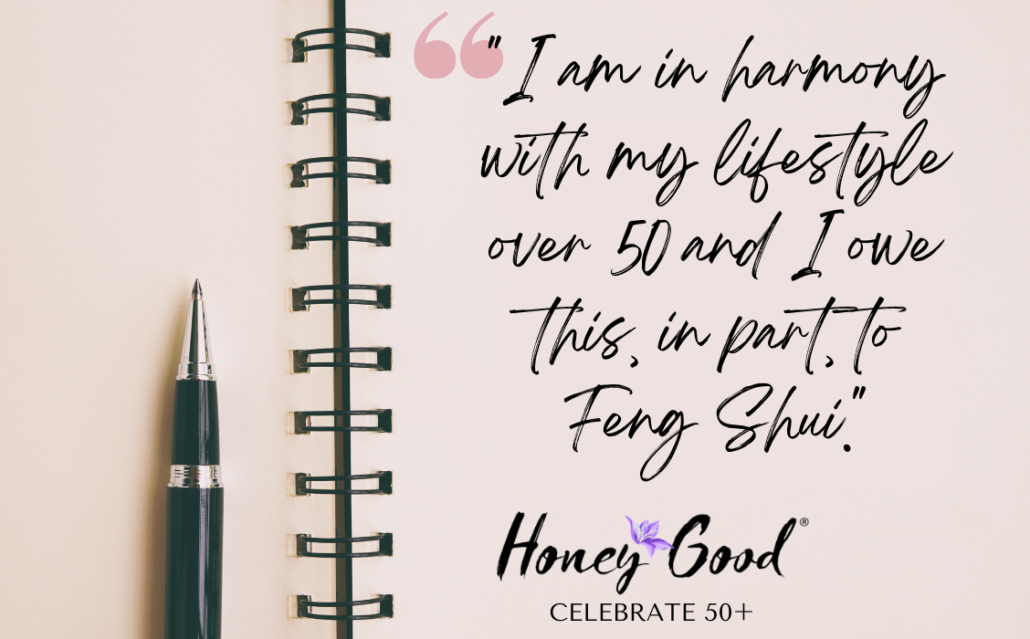 " I am in harmony
with my lifestyle
over 50 and I owe
this, in part, to
Feng Shui".
Honey Good®
CELEBRATE 50+